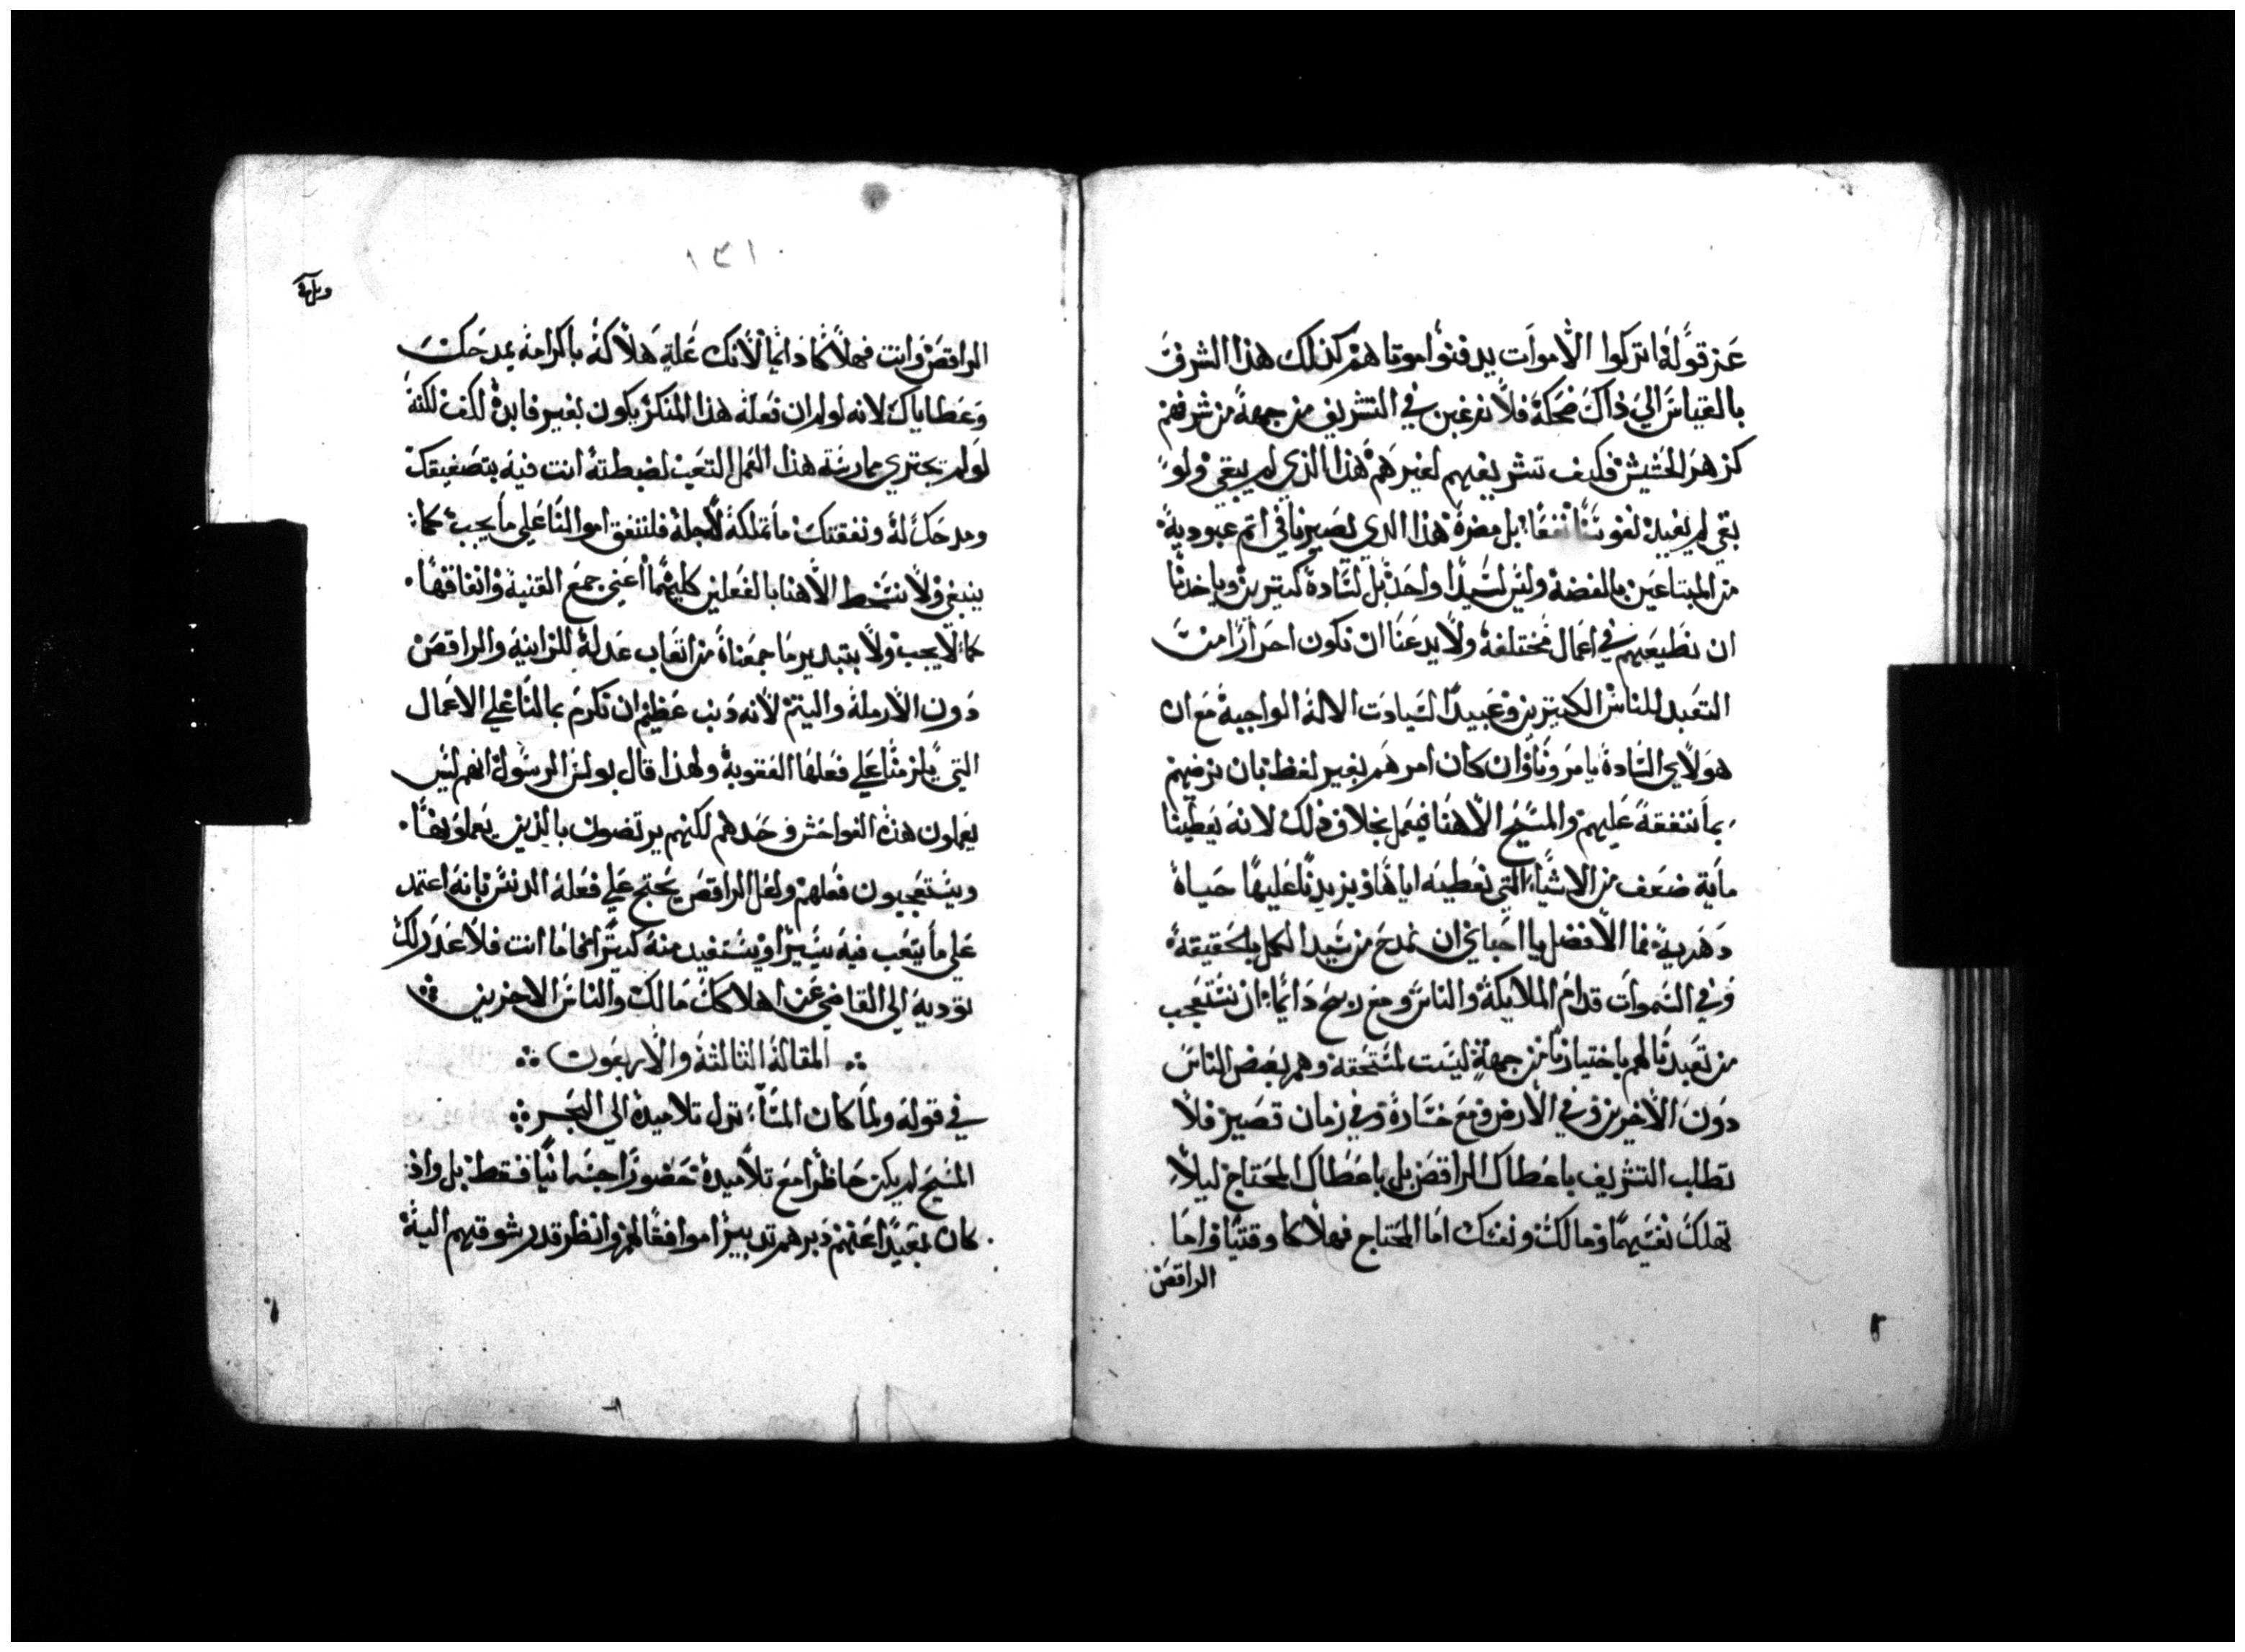 عن قوله اتركوا الأموات يدفنوا موتاهم كذلك هذا الشرف
بالقياس الي ذاك ضحكة فلا نرغبن في التشريف من جهة من شرفهم
كزهر الحشيش فكيف تشريفهم لغيرهم هذا الذي لم يبقي ولو
بقي لم يفيد نفوسنا نفعًا بل مضرة هذا الذي تصيرنا في اتم عبودية
من المبتاعين بالفضة وليس لسيدًا واحد بل لسادة كتيرين وياخدنا
ان نطيعهم في اعمال مختلفة ولا يدعنا ان نكون احرارًا من
التعبد للناس الكتيرين وعبيدًا لسيادت الاله الواجبة مع ان
هولاي السادة يامرونا وان كان امرهم بغير لفظ بان نرضيهم
بما ننفقة عليهم والمسيح الاهنا فيعمل بخلاف ذلك لانه يعطينا
ماية ضعف من الاشياء التي نعطيه اياها ويزيدنا عليها حياة
دهرية فما الأفضل يا احباي ان نمدح من سيد الكل بالحقيقة
وفي السموات قدام الملايكة والناس ومع ربح دائما ان نتعجب
من تعبدنا لهم باختيارنا من جهة ليست لمستحقة وهم بعض الناس
دون الأخرين وفي الأرض ومع خسارة وفي زمان قصير فلا
تطلب التشريف باعطاك الراقص بل باعطاك المحتاج ليلا
تهلك نفسيهما ومالك ونفسك اما المحتاج فهلاكا وقتيا واما
الراقص
١٣١
الراقص وانت فهلاكا دائما لأنك علة هلاكه باكرامه بمدحك
وعطاياك لانه لو لم ان فعله هذا المنكر يكون بغير فايدة لكف لكنه
لو لم يجتري ممارسة هذا العمل التعب لضبطته انت فيه بتصفيقك
ومدحك له ونفقتك ما تملكه لأجله فلننفق اموالنا علي ما يجب كما
ينبغي ولا نسخط الأهنا بالفعلين كليهما أعني جمع القنية وانفاقها
كما لا يجب ولا بتبدير ما جمعناه من اتعاب عدله للزانية والراقص
دون الأرملة واليتم لأنه دنب عظيم ان نكرم بمالنا علي الاعمال
التي يلزمنا علي فعلها العقوبة ولهذا قال بولس الرسول انهم ليس
يعملون هذه الفواحش وحدهم لكنهم يرتضون بالذين يعملونها
ويستعجبون فعلهم ولعل الراقص يحتج علي فعله الدنس بانه اعتمد
علي ما يتعب فيه يسيرًا ويستفيد منه كتيرًا فاما انت فلا عدر لك
توديه الي القاضي عن اهلاكك مالك والناس الاخرين
المقالة الثالثة والأربعون
في قوله ولما كان المساء نزل تلاميده الي البحر
المسيح لم يكن حاظرا مع تلاميده حضورًا جسمانيا فقط بل واذ
كان بعيدًا عنهم دبرهم تدبيرًا موافقًا لهم وانظر قدر شوقهم اليه